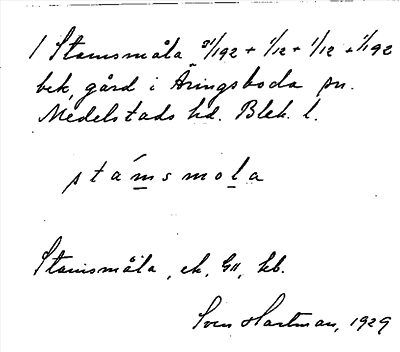 1 Stamsmåla 31/192 + 1/12 + 1/12 + 1/192
bek, gård i Åringsboda sn.
Medelstads hd. Blek. l.
stámsmola
Stamsmåla, ek, GII, kb.
Sven Hartman, 1929